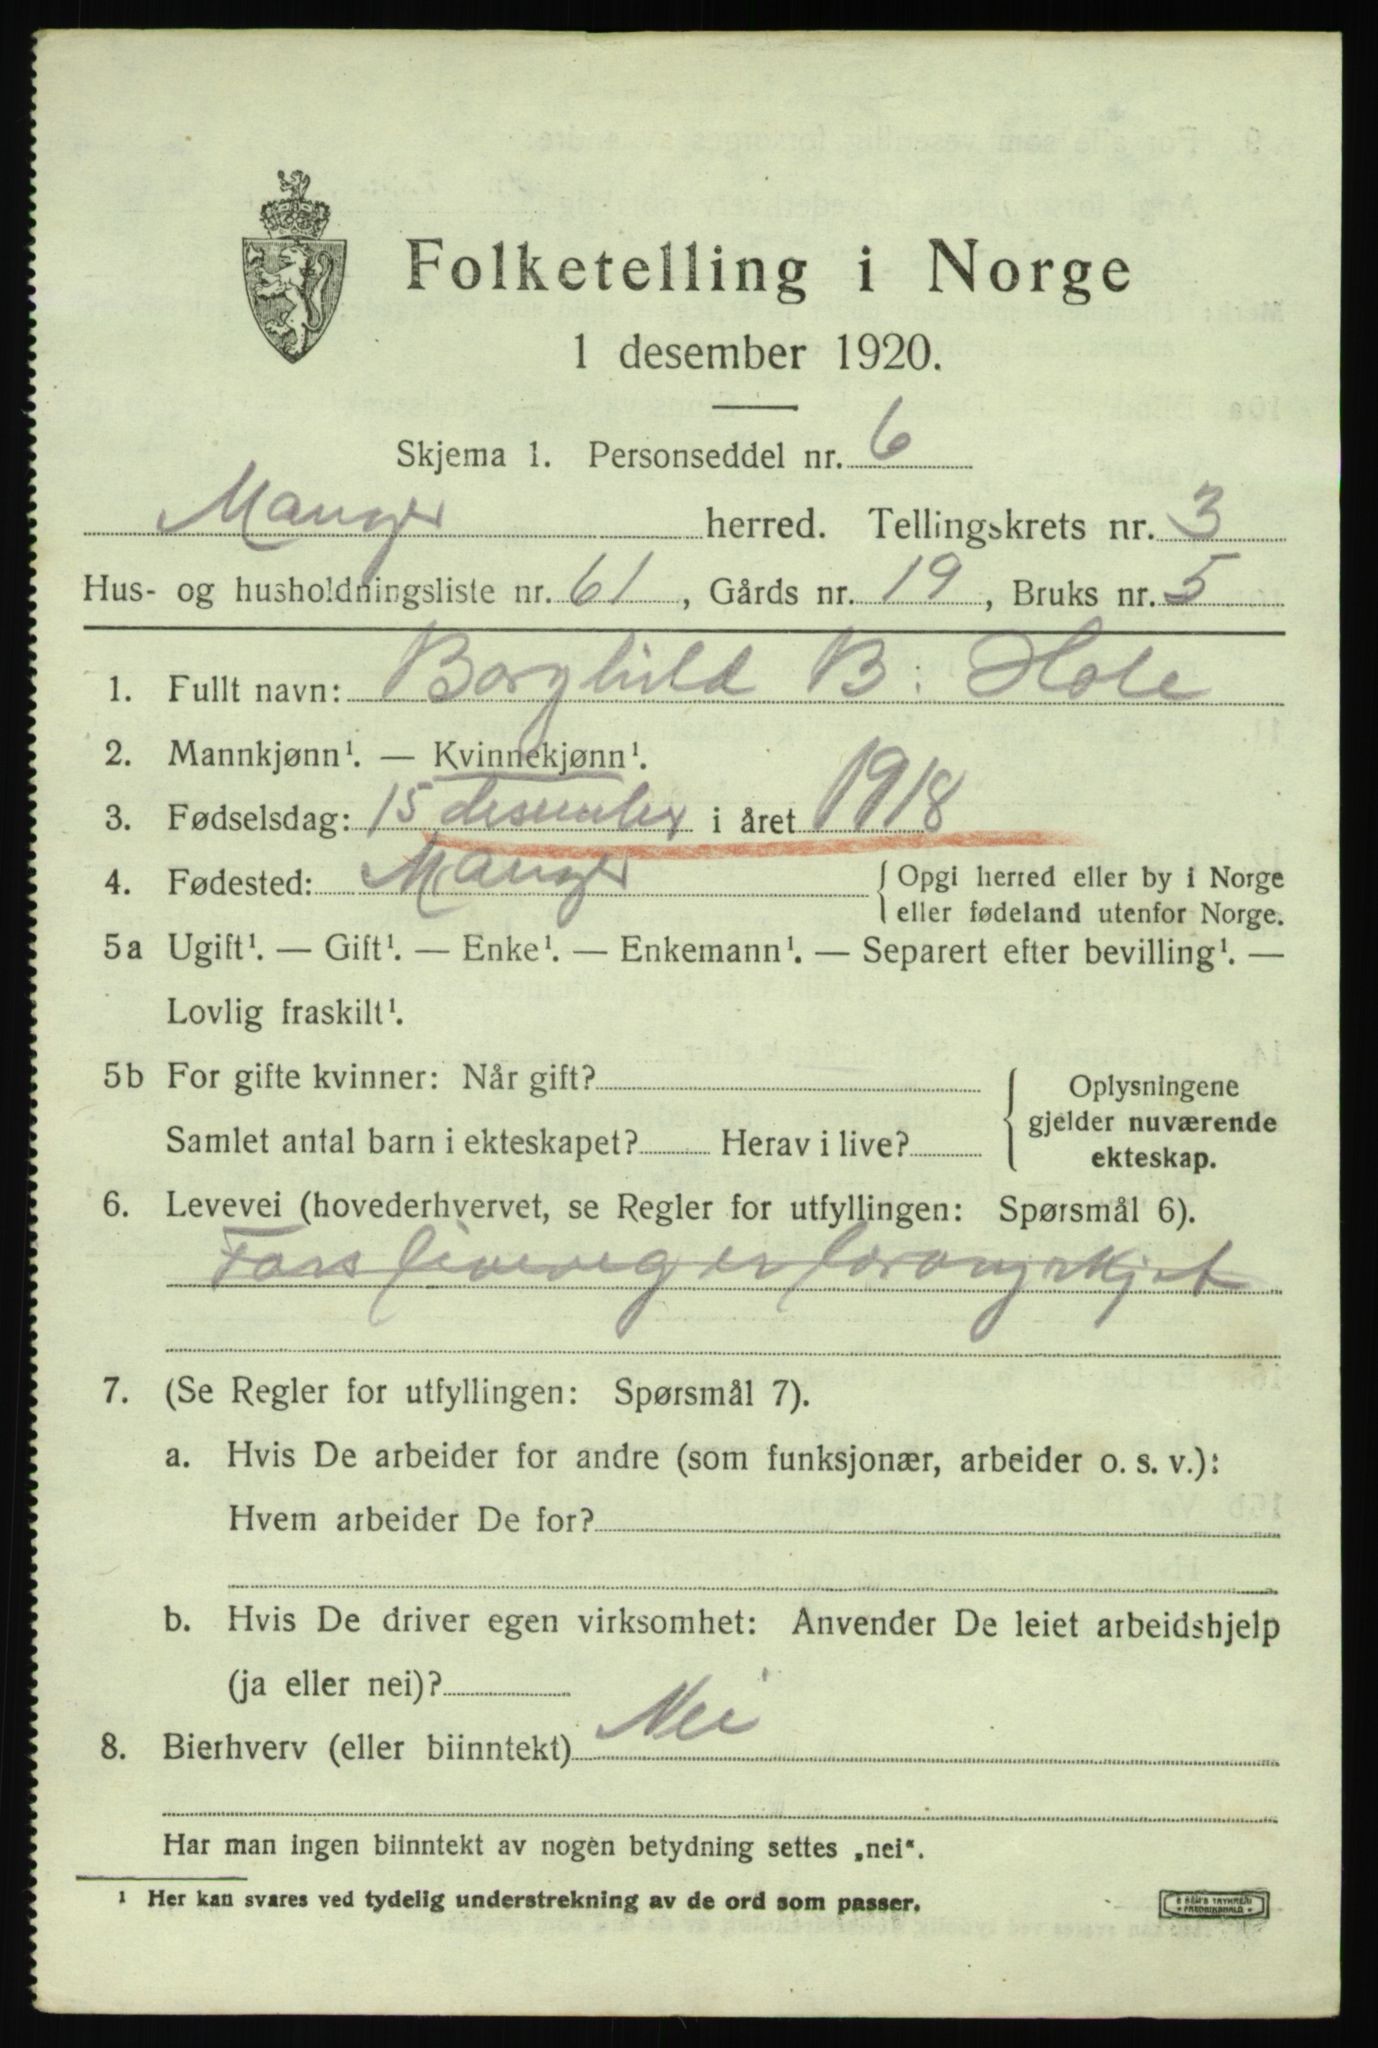 Folketelling i Norge
1 desember 1920.
Skjema 1. Personseddel nr. 6
Manger herred. Tellingskrets nr. 3
Hus- og husholdningsliste nr. 61, Gårds nr. 19, Bruks nr. 5
1. Fullt navn: Borghild B. Hole
2. Mannkjønn¹. — Kvinnekjønn¹.
3. Fødselsdag: 15 desember i året 1918
4. Fødested: Manger { Opgi herred eller by i Norge
eller fødeland utenfor Norge.
5a Ugift¹. — Gift¹. — Enke¹. — Enkemann¹. — Separert efter bevilling¹. —
Lovlig fraskilt¹.
5b For gifte kvinner: Når gift?
Samlet antal barn i ekteskapet? Herav i live?
{ Oplysningene
gjelder nuværende
ekteskap.
6. Levevei (hovederhvervet, se Regler for utfyllingen: Spørsmål 6).
Fars
7. (Se Regler for utfyllingen: Spørsmål 7).
a. Hvis De arbeider for andre (som funksjonær, arbeider o. s. v.):
Hvem arbeider De for?
b. Hvis De driver egen virksomhet: Anvender De leiet arbeidshjelp
(ja eller nei)?
8. Bierhverv (eller biinntekt) Nei
Har man ingen biinntekt av nogen betydning settes „nei“.
¹ Her kan svares ved tydelig understrekning av de ord som passer.